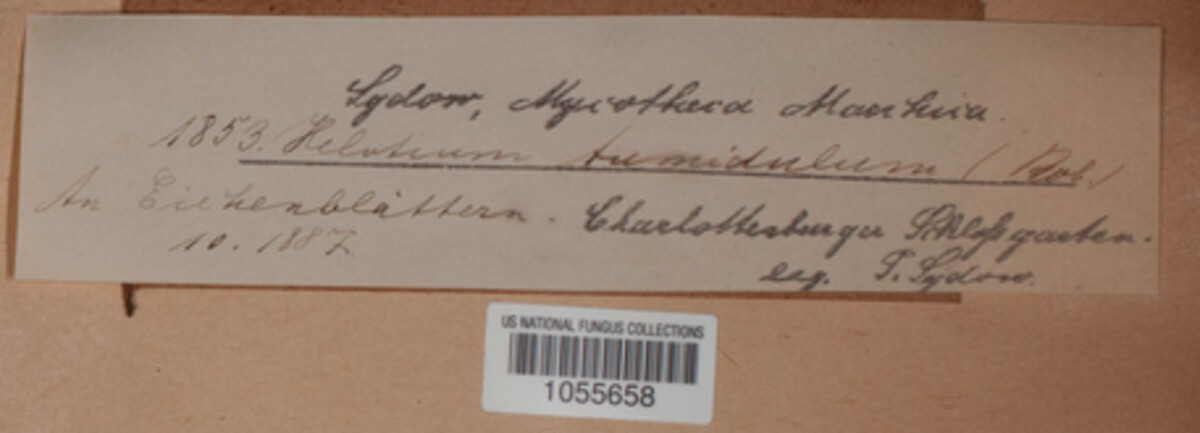 Sydow, Mycotheca Marchica.
1853. Helotium tumidulum (Rob.)
An Eichenblättern. Charlottenburger Schloßgarten.
10. 1887.
leg. P. Sydow.
US NATIONAL FUNGUS COLLECTIONS
1055658